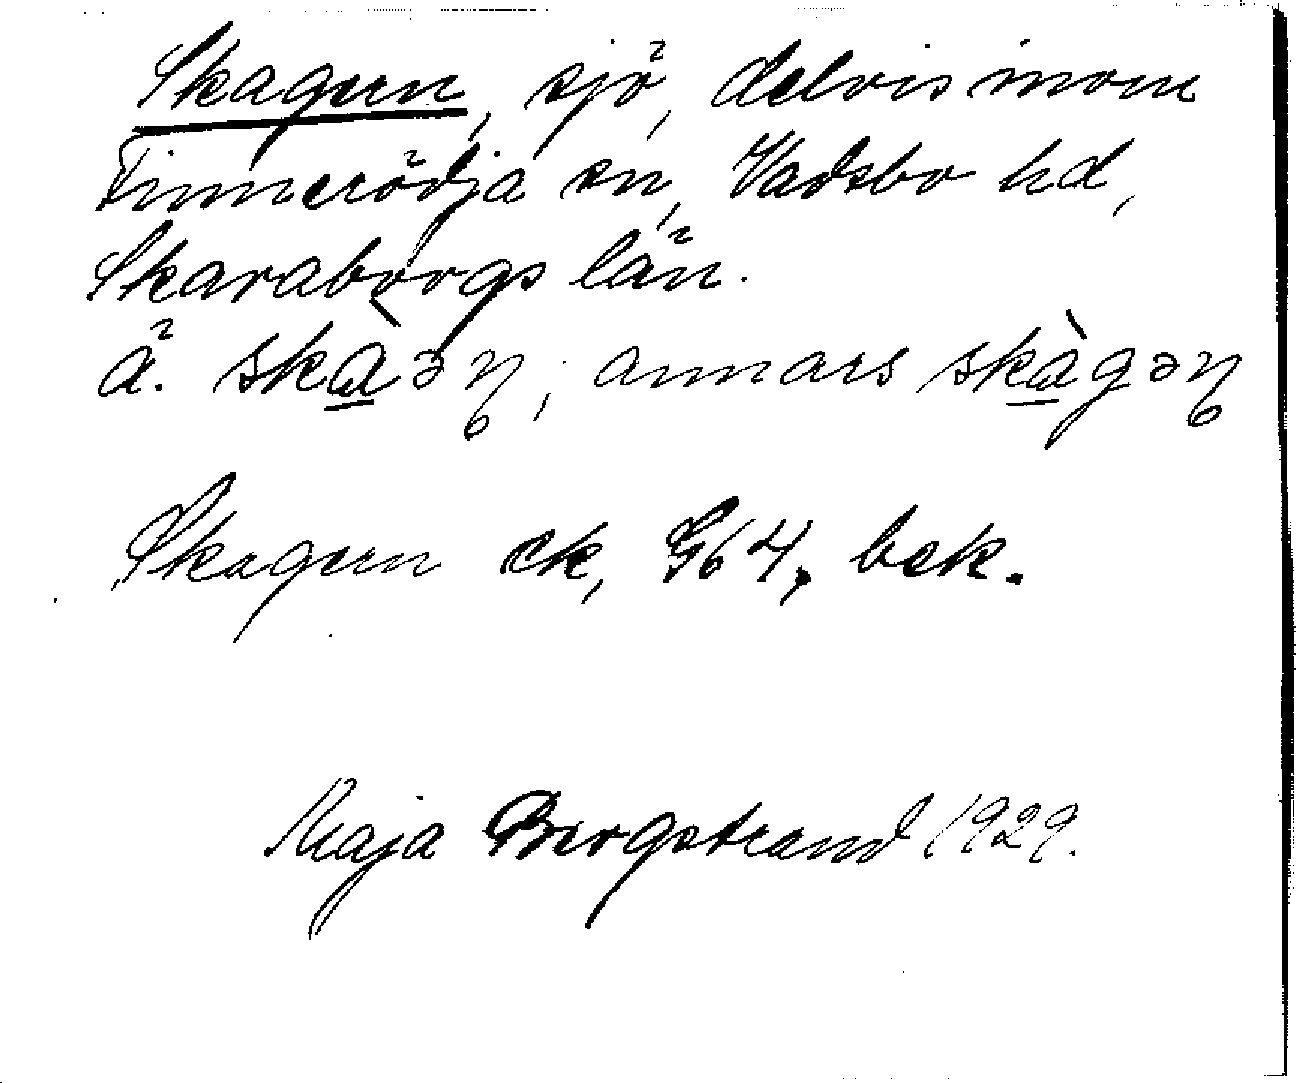 Skagern, sjö, delvis inom
Tinnerödja sn, Vadsbo hd,
Skaraborgs län.
ä. skàəɳ; annars skàgəɳ
Skagern ek, G64, bek.
Maja Bergstrand 1929.